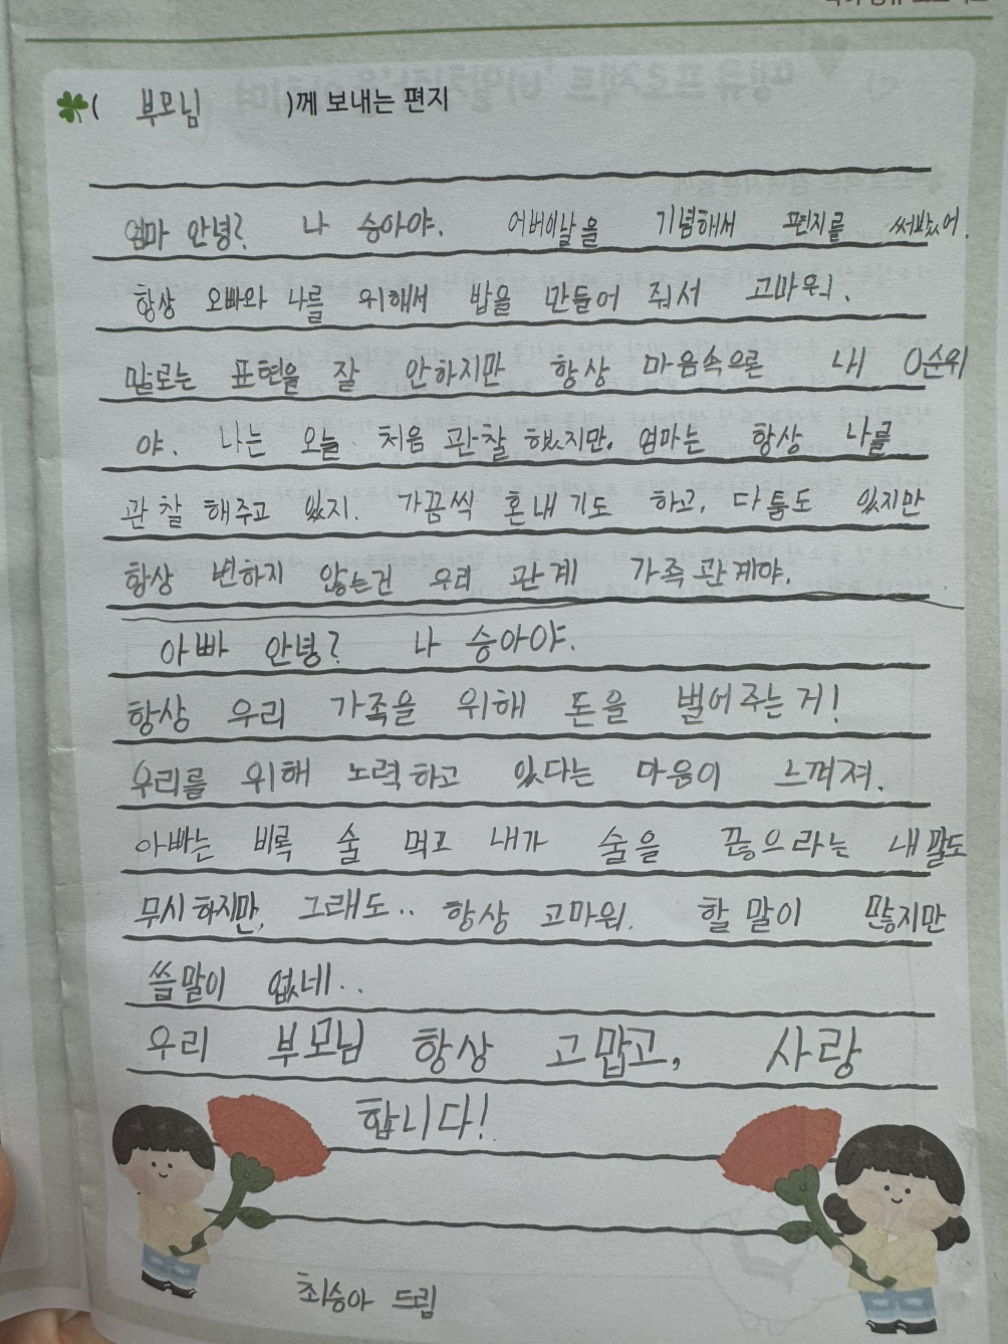 ( 부모님 )께 보내는 편지
엄마 안녕? 나 승아야. 어버이날을 기념해서 편지를 써봤어.
항상 오빠와 나를 위해서 밥을 만들어 줘서 고마워.
말로는 표현을 잘 안하지만 항상 마음속으론 내 0순위
야. 나는 오늘 처음 관찰 했지만, 엄마는 항상 나를
관찰 해주고 있지. 가끔씩 혼내기도 하고, 다툼도 있지만
항상 변하지 않는건 우리 관계 가족관계야.
아빠 안녕? 나 승아야.
항상 우리 가족을 위해 돈을 벌어주는거!
우리를 위해 노력하고 있다는 마음이 느껴져.
아빠는 비록 술 먹고 내가 술을 끊으라는 내 말도
무시하지만, 그래도.. 항상 고마워. 할 말이 많지만
쓸말이 없네..
우리 부모님 항상 고맙고, 사랑
합니다!
최승아 드립